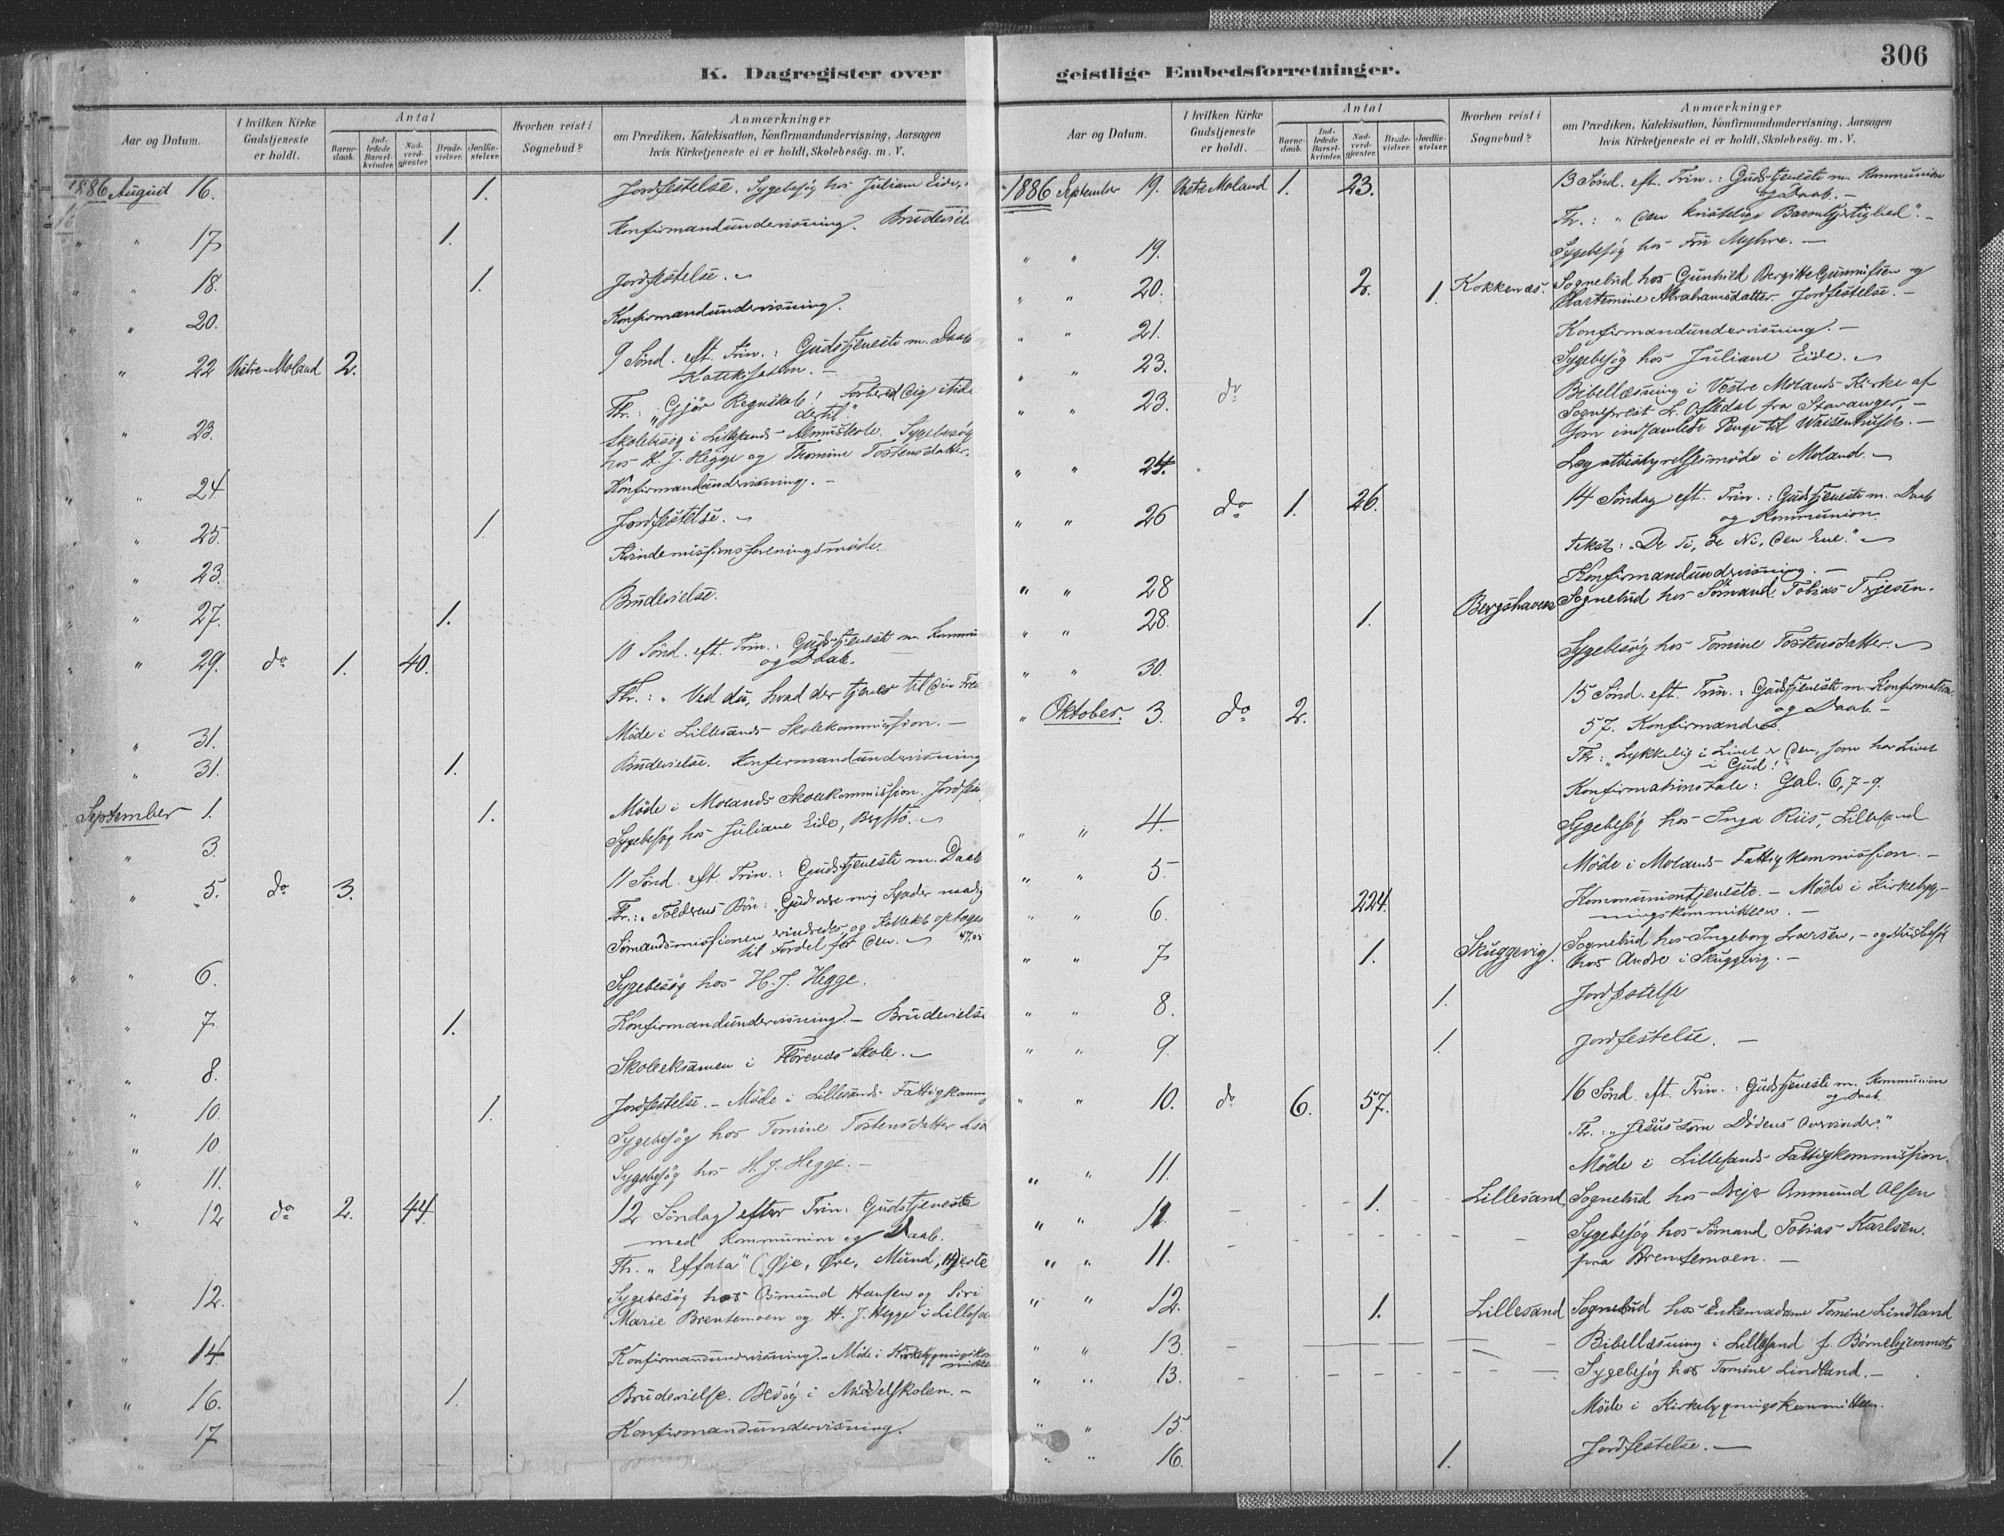 306
K. Dagregister over geistlige Embedsforretninger.
Aar og Datum.
I hvilken Kirke Gudstjeneste er holdt.
Antal
Barnedaab.
Indledede Barselkvinder.
Nadverdgjester.
Brudevielser.
Jordfæstelser.
Hvorhen reist i Sognebud?
Anmærkninger
om Prædiken, Katekisation, Konfirmandundervisning, Aarsagen hvis Kirketjeneste ei er holdt, Skolebesøg. m. V.
1886 August 16. 1. Jordfestelse. Sygebesøg hos Juliane Eide,
" " 17 1. Konfirmandundervisning. Brudeviel
" " 18. 1. Jordfestelse. -
" " 20. Konfirmandundervisning.
" 22 Vestre-Moland 2. 9 Sønd. eft. Trin.: Gudstjeneste m. Daab
Katekisation. -
Th.: "Gjør Regnskab! Forbered Dig
dertil".
" 23. Skolebesøg i Lillesands Almueskole. Sygebesøg
hos H. J. Hegge og Thomine Tostensdatter.
" " 24 Konfirmandundervisning. -
" 25. 1 Jordfestelse. -
" 23. Kvindemissionsforeningsmøde.
" " 27. 1. Brudevielse.
" " 29. do 1. 40. 10 Sønd. eft. Trin.: Gudstjeneste m. Kommu
og Daab.
Th.: "Ved du, hvad der tjener til Din Fre
" " 31. Møde i Lillesands Skolekommission. -
" " 31. 1. Brudevielse. Konfirmandundervisning
" September 1. 1. Møde i Molands Skolekommission. Jordfest
" 3. Sygebesøg hos Juliane Eide,
" 5. do 3. 11 Sønd. eft. Trin.: Gudstjeneste m. Daab
Th.: Tolderens Bøn: Gud vær mig Synder naadig
Sømandsmissionen erindredes og Kollekt optoges
til Fordel for Den. -
" 6. Sygebesøg hos H. J. Hegge.
" 7. 1. Konfirmandundervisning. - Brudevielse
" 8. Skoleeksamen i Skole. -
" 10. 1. Jordfestelse. - Møde i Lillesands Fattigkomm
" 10 Sygebesøg hos Tomine Tostensdatter
" 11. Sygebesøg hos H. J. Hegge. -
" 12 do 2. 44. 12 Søndag efter Trin: Gudstjeneste
med Kommunion og Daab.
Th. "Effata" (Øie, Øre, Mund, Hjerte
" 12. Sygebesøg hos Osmund Hansen og Siri
Marie Brentemoen og H. J. Hegge i Lillesan
" 14 Konfirmandundervisning. - Møde i Kirkebygningsko
mitteen
" 16. 1. Brudevielse. Besøg i Middelskolen. -
" 17. Konfirmandundervisning.
Aar og Datum.
I hvilken Kirke Gudstjeneste er holdt.
Antal
Barnedaab.
Indledede Barselkvinder.
Nadverdgjester.
Brudevielser.
Jordfæstelser.
Hvorhen reist i Sognebud?
Anmærkninger
om Prædiken, Katekisation, Konfirmandundervisning, Aarsagen hvis Kirketjeneste ei er holdt, Skolebesøg. m. V.
1886 September 19. Vestre Moland 1. 23. 13 Sønd. eft. Trin.: Gudstjeneste m. Kommunion
og Daab. -
Th.: "Den kristelige Barmhjertighed". -
" " 19. Sygebesøg hos Fru Myhre. -
" " 20. 2. 1. Kokkenes. Sognebud hos Gunhild Bergitte Gunnufsen og
Martemine Abrahamsdatter. Jordfestelse. -
" " 21. Konfirmandundervisning. -
" " 23. Sygebesøg hos Juliane Eide. -
" " 23. do Bibellæsning i Vestre Molands Kirke af
Sogneprest L. Oftedal fra Stavanger, -
som indsamlede Penge til Waisenhuset. -
" " 24. Legatbestyrelsesmøde i Moland. -
" " 26 do 1. 26. 14 Søndag eft. Trin.: Gudstjeneste m. Daab
og Kommunion.
Tekst: "De Ti, de Ni, Den Ene." -
" " 28 Konfirmandundervisning. -
" " 28. 1. Bergshaven Sognebud hos Sømand Tobias Terjesen.
" 30. Sygebesøg hos Tomine Tostensdatter. -
" Oktober. 3. do 2. 15 Sønd. eft. Trin.: Gudstjeneste m. Konfirmation
og Daab. -
57. Konfirmander.
Th.: "Lykkelig i Livet er Den, som har Livet
i Gud!"
Konfirmationstale: Gal. 6,7-9.
" " 4. Sygebesøg hos Inga Riis, Lillesand
" " 5. Møde i Molands Fattigkommission. -
" " 6. 224. Kommuniontjeneste. - Møde i Kirkebyg-
ningskommitteen. -
" " 7 1. Skuggevig. Sognebud hos Ingeborg Larsen, - og Husbesøg
hos Andre i Skuggevig. -
" " 8. 1. Jordfestelse
" " 9. 1. Jordfestelse. -
" " 10. do 6. 57. 16 Sønd. eft. Trin.: Gudstjeneste m. Kommunion
og Daab.
Th.: "Jesus som Dødens Overvinder."
" " 11. Møde i Lillesands Fattigkommission.
" " 11. 1. Lillesand Sognebud hos Dreier Anmund Olsen
" " 11. Sygebesøg hos Sømand Tobias Karlsen.
paa Brentemoen. -
" " 12. 1. Lillesand Sognebud hos Enkemadame Tomine Lindland
" " 13. Bibellæsning i Lillesand f. Børnehjemmet
" " 13. Sygebesøg hos Tomine Lindland. -
" " 15. Møde i Kirkebygningskommitteen.
" " 16. 1. Jordfestelse. -